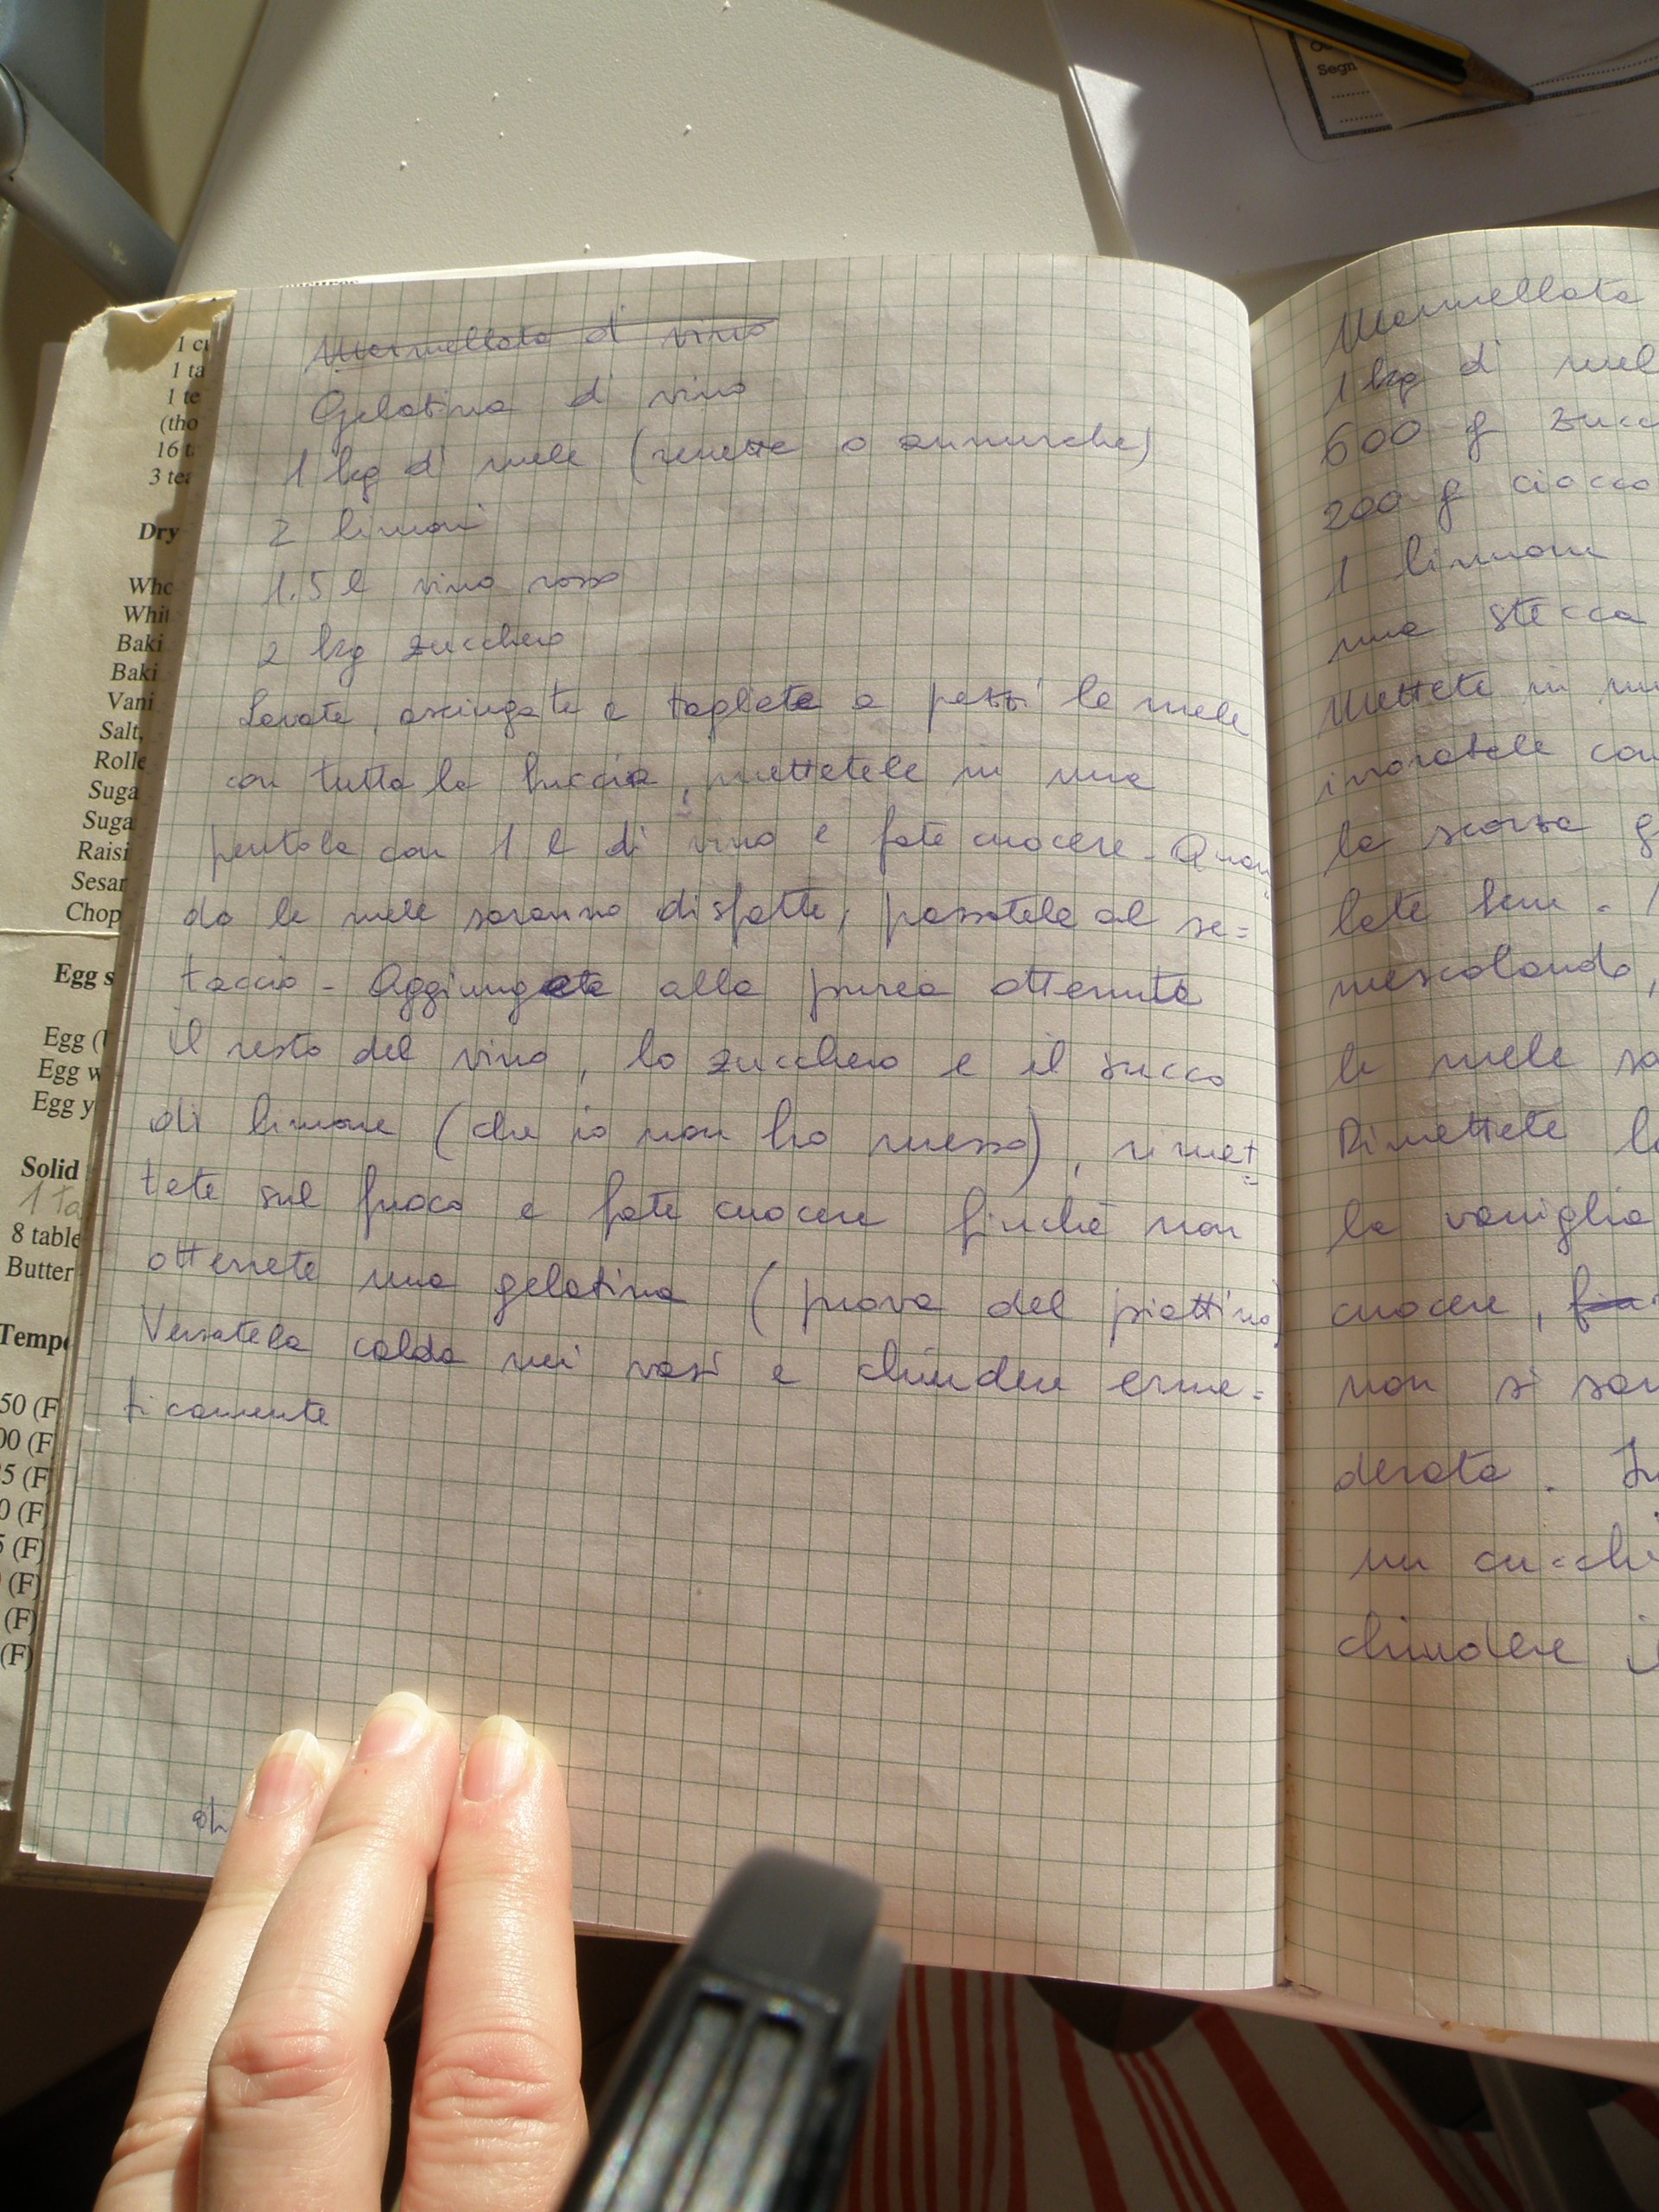 Ou
Segn
1 cu
1 ta
1 te
(tho
16 t
3 tea
Dry
Who
Whit
Baki
Baki
Vani
Salt,
Rolle
Suga
Suga
Raisi
Sesar
Chop
Egg s
Egg (
Egg w
Egg y
Solid
1 ta
8 table
Butter
Tempe
50 (F
00 (F
5 (F)
0 (F)
5 (F)
(F)
(F)
(F)
Marmellata di vino
Gelatina di vino
1 kg di mele (renette o annurche)
2 limoni
1.5 l vino rosso
2 kg zucchero
Lavate, asciugate e tagliate a pezzi le mele
con tutta la buccia, mettetele in una
pentola con 1 l di vino e fate cuocere. Quan=
do le mele saranno disfatte, passatele al se=
taccio. Aggiungete alla purea ottenuta
il resto del vino, lo zucchero e il succo
di limone (che io non ho messo), rimet=
tete sul fuoco e fate cuocere finchè non
otterrete una gelatina (prova del piattino)
Versatela calda nei vasi e chiudere erme=
ticamente
Marmellata
1 kg di mel
600 g zucc
200 g ciocco
1 limone
una stecca
Mettete in un
irroratele con
la scorza g
late bene.
mescolando,
le mele sa
Rimettete la
la vaniglia
cuocere,
non si sar
derata. In
un cucchi
chiudere i